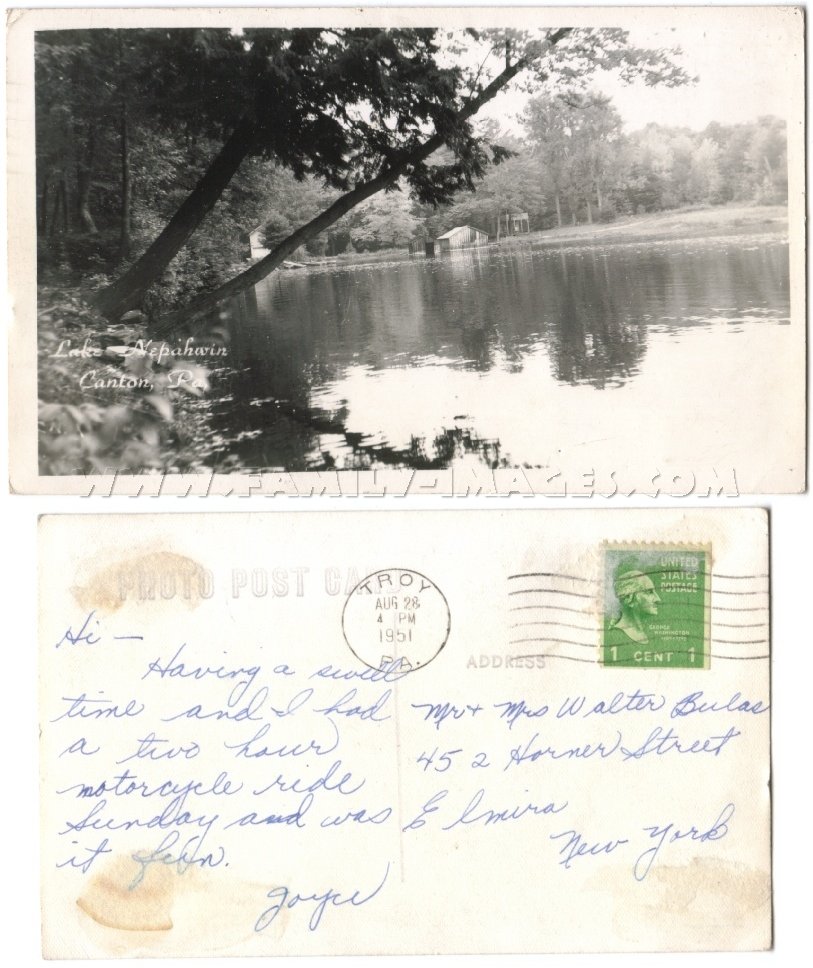 Lake Nepahwin
Canton, Pa.
WWW.FAMILY-IMAGES.COM
PHOTO POST CARD
TROY
AUG 28
4 PM
1951
PA.
UNITED
STATES
POSTAGE
GEORGE
WASHINGTON
1789-1797
1 CENT 1
ADDRESS
Hi —
Having a sweet
time and I had
a two hour
motorcycle ride
Sunday and was
it fun.
Joyce
Mr + Mrs Walter Bulas
452 Horner Street
Elmira
New York